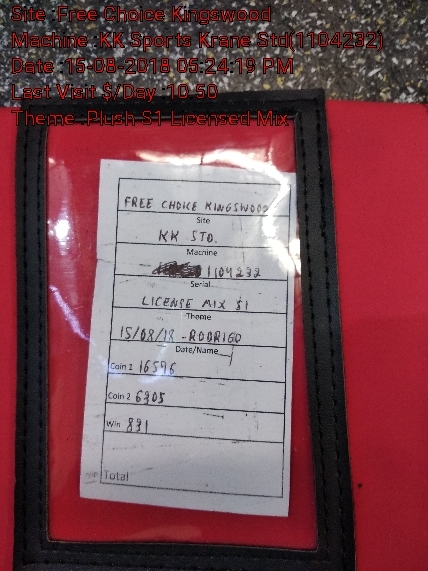 Site :Free Choice Kingswood
Machine :KK Sports Krane Std(1104232)
Date :15-08-2018 05:24:19 PM
Last Visit $/Day :10.50
Theme :Plush $1 Licensed Mix
FREE CHOICE KINGSWOOD
Site
KK STD.
Machine
1104232
Serial
LICENSE MIX $1
Theme
15/08/18 -RODRIGO
Date/Name
Coin 1 16596
Coin 2 6905
Win 891
Total